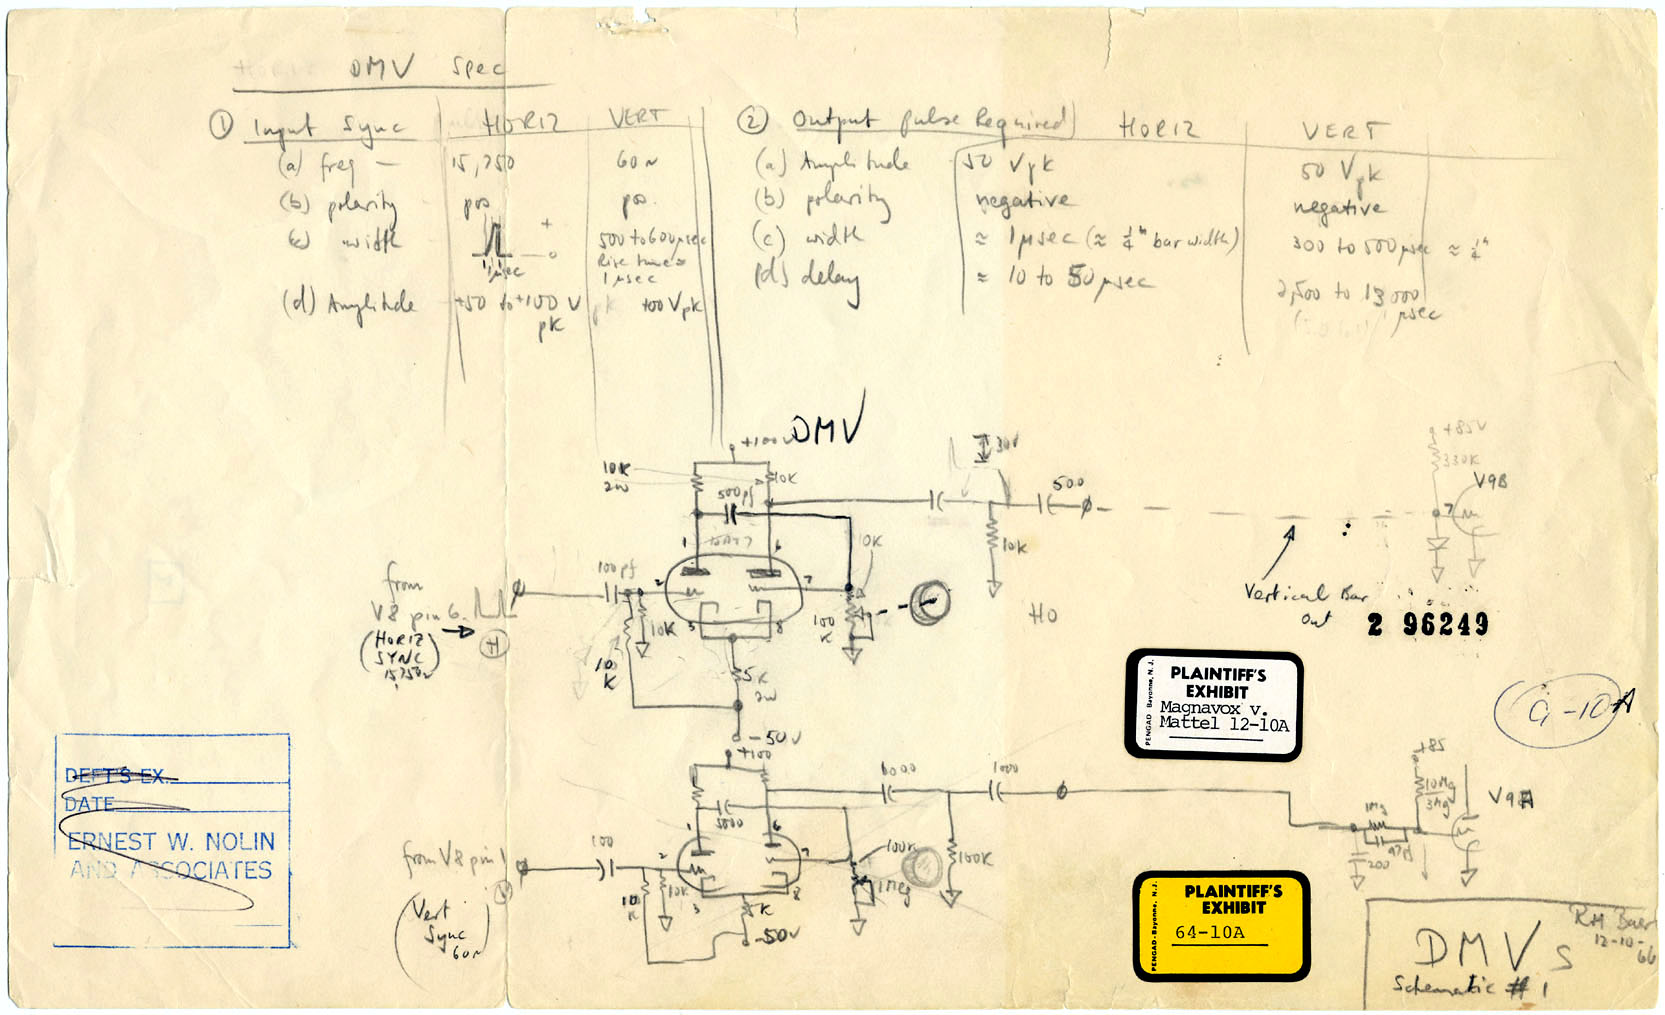 DMV Spec
① Input Sync HORIZ VERT
(a) freq — 15,750 60~
(b) polarity pos pos.
(c) width 1 μsec + 0 500 to 600 μsec
Rise time ≈
1 μsec
(d) Amplitude +50 to +100 V pk +100 Vpk
② Output pulse Required HORIZ VERT
(a) Amplitude 50 Vpk 50 Vpk
(b) polarity negative negative
(c) width ≈ 1 μsec (≈ 1/4" bar width) 300 to 500 μsec ≈ 1/4"
(d) delay ≈ 10 to 50 μsec 2,500 to 13000
μsec
DMV
+100V
10K
2W
10K
500pf
30V
500
+85V
330K
V9B
7
1 6
10K
10K
100pf
2 7
3 8
10K
10
K
100
K
5K
2W
-50V
from
V8 pin 6
(HORIZ
SYNC
15750~)
H
HO
Vertical Bar
Out
2 96249
PENGAD-Bayonne, N.J.
PLAINTIFF'S
EXHIBIT
Magnavox v.
Mattel 12-10A
G-10A
DEFT'S EX.
DATE
ERNEST W. NOLIN
AND ASSOCIATES
+100
5000
1000
1 6
100
2 7
3 8
10K
10
K
K
-50V
100K
1 Meg
100K
from V8 pin 1
V
(Vert
Sync
60~)
+85
10Mg
3Mg
1Mg
47pf
200
V9A
PENGAD-Bayonne, N.J.
PLAINTIFF'S
EXHIBIT
64-10A
RM Baer
12-10-
66
DMVs
Schematic #1